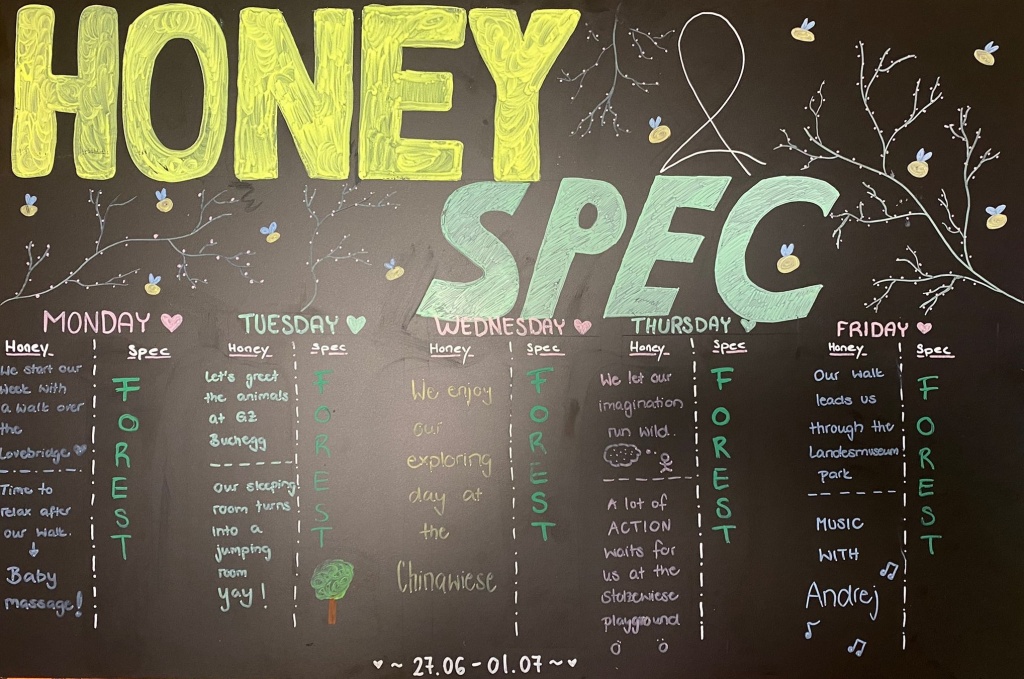 HONEY
&
SPEC
MONDAY
Honey
We start our
week with
a walk over
the
Lovebridge
Time to
relax after
our walk.
Baby
massage!
Spec
F
O
R
E
S
T
TUESDAY
Honey
Let's greet
the animals
at GZ
Buchegg
our sleeping
room turns
into a
jumping
room
yay!
Spec
F
O
R
E
S
T
WEDNESDAY
Honey
We enjoy
our
exploring
day at
the
Chinawiese
Spec
F
O
R
E
S
T
THURSDAY
Honey
We let our
imagination
run wild.
A lot of
ACTION
waits for
us at the
Stolzewiese
playground
Spec
F
O
R
E
S
T
FRIDAY
Honey
Our walk
leads us
through the
Landesmuseum
park
MUSIC
WITH
Andrej
Spec
F
O
R
E
S
T
~ 27.06 - 01.07 ~